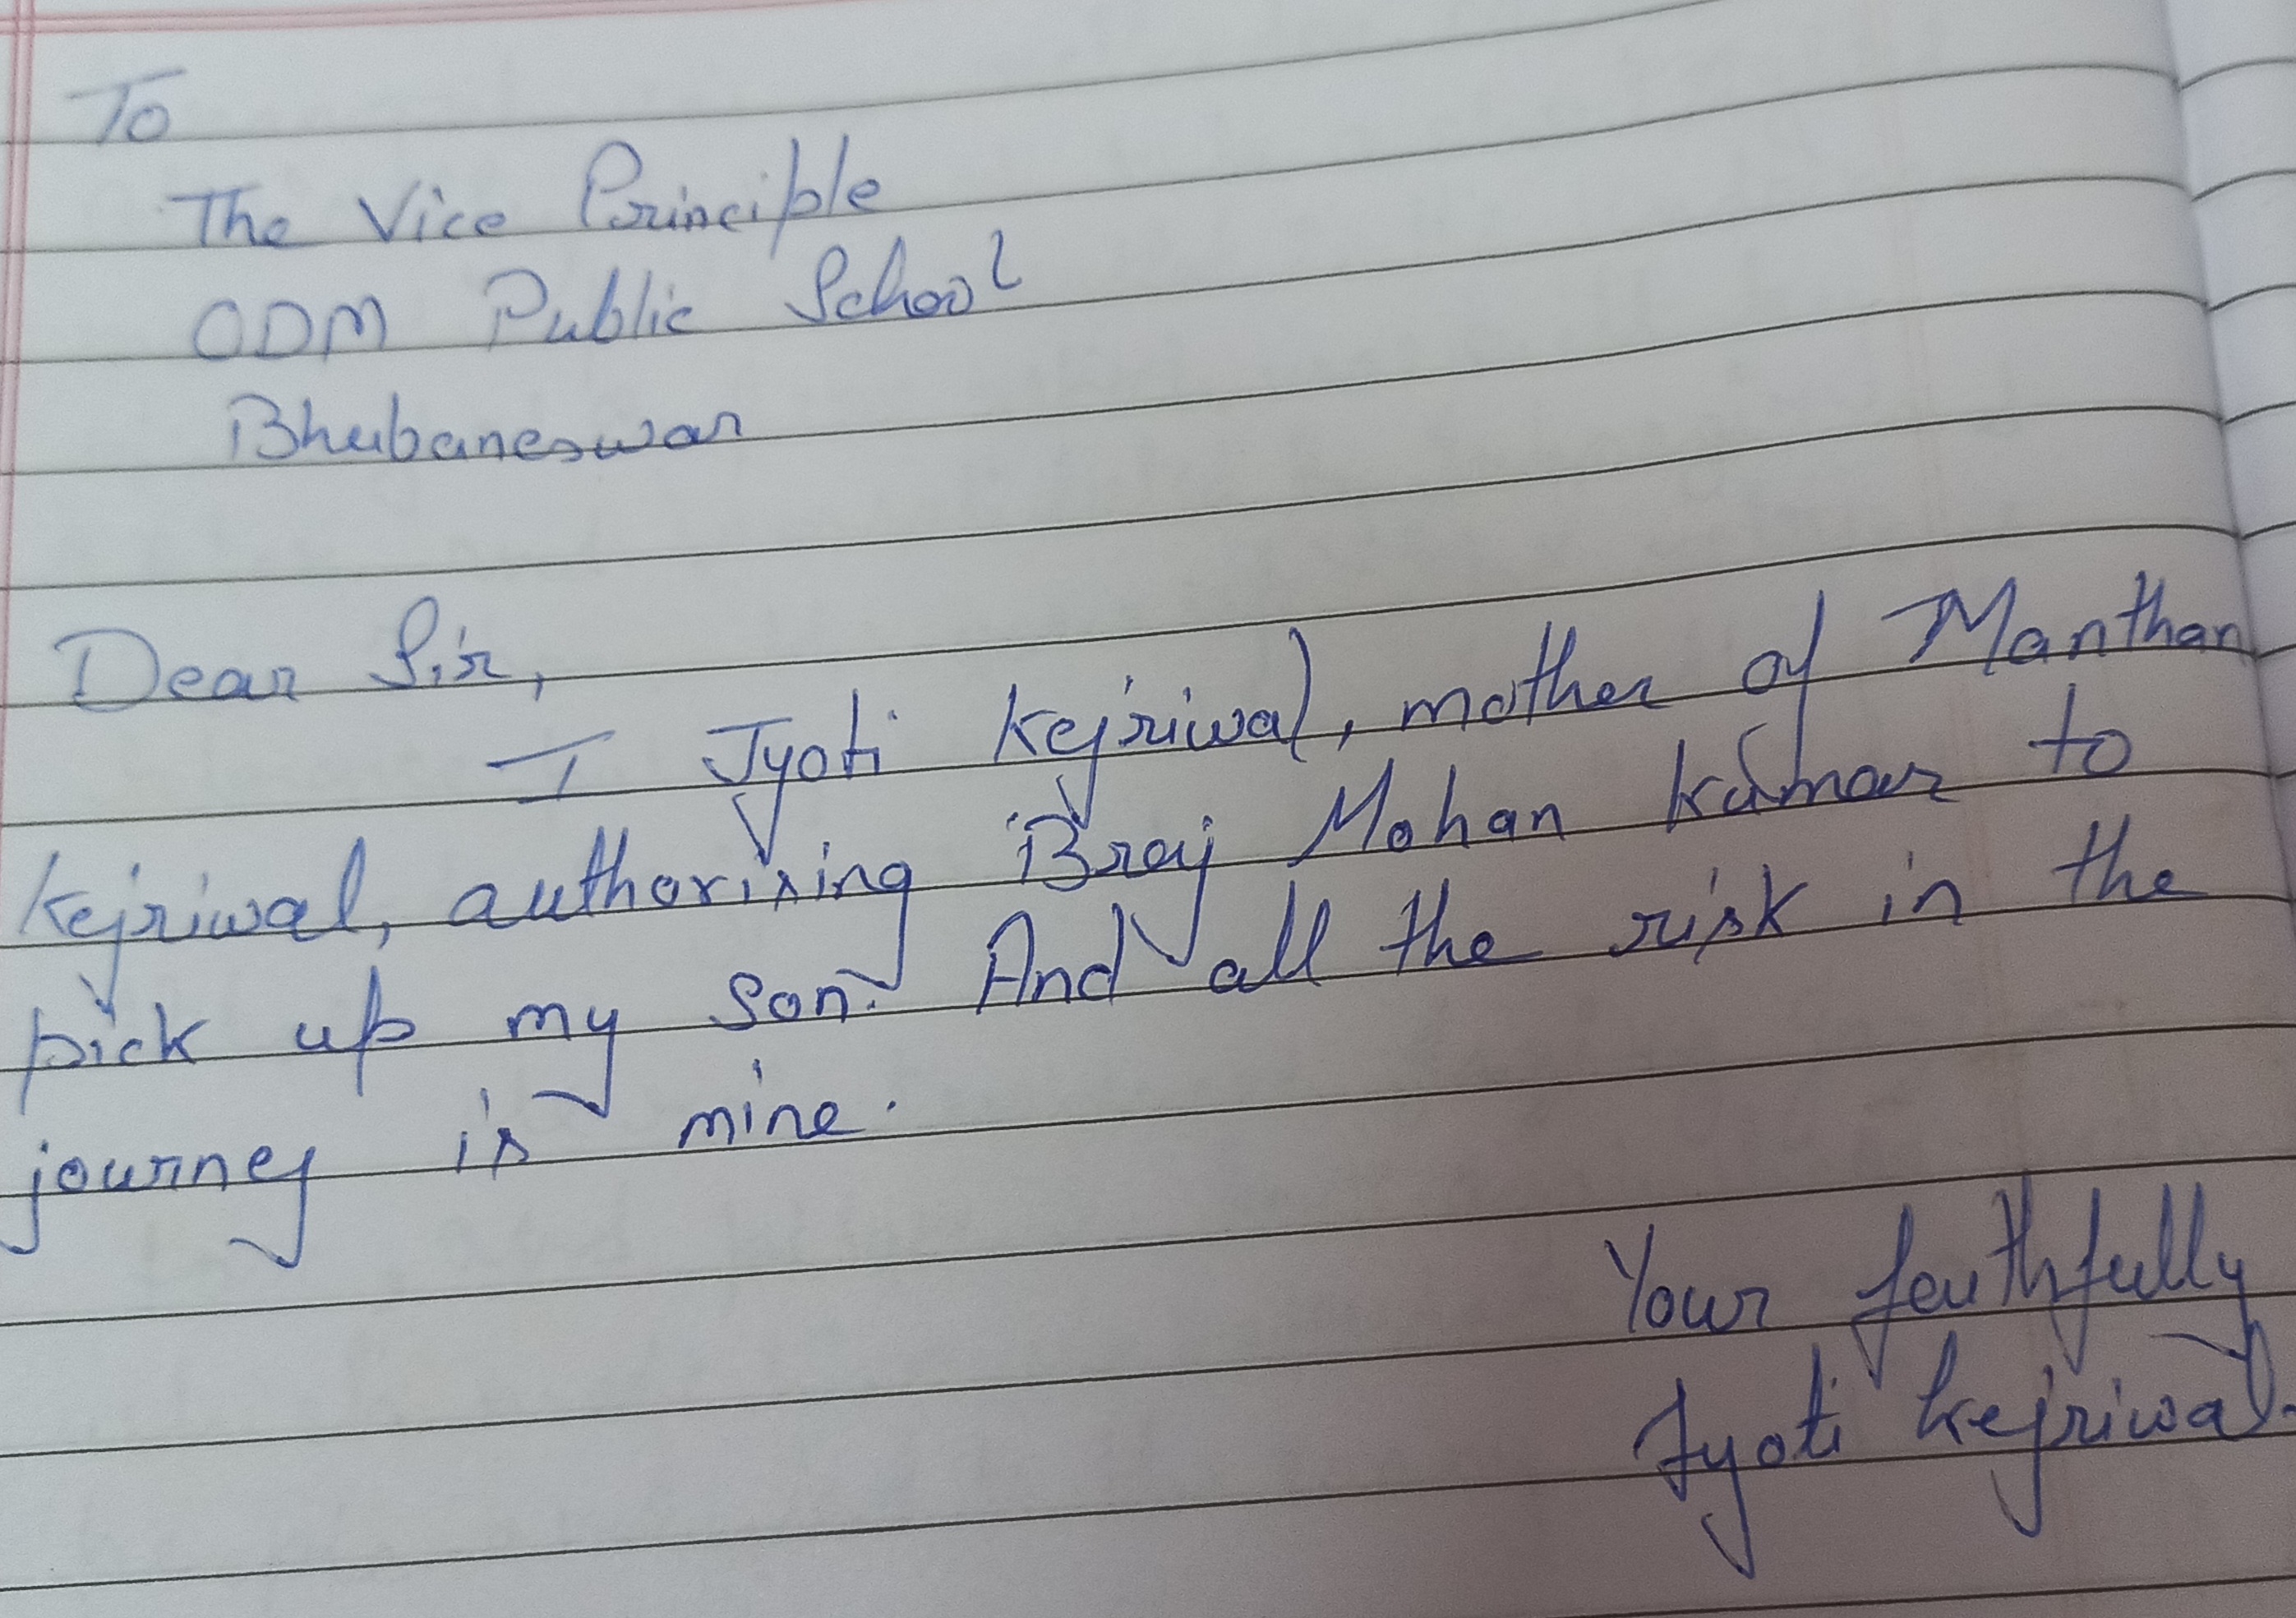 To
The Vice Principle
ODM Public School
Bhubaneswar
Dear Sir,
I Jyoti Kejriwal, mother of Manthan
Kejriwal, authorising Braj Mohan Kumar to
pick up my son. And all the risk in the
journey is mine.
Your faithfully
Jyoti Kejriwal.